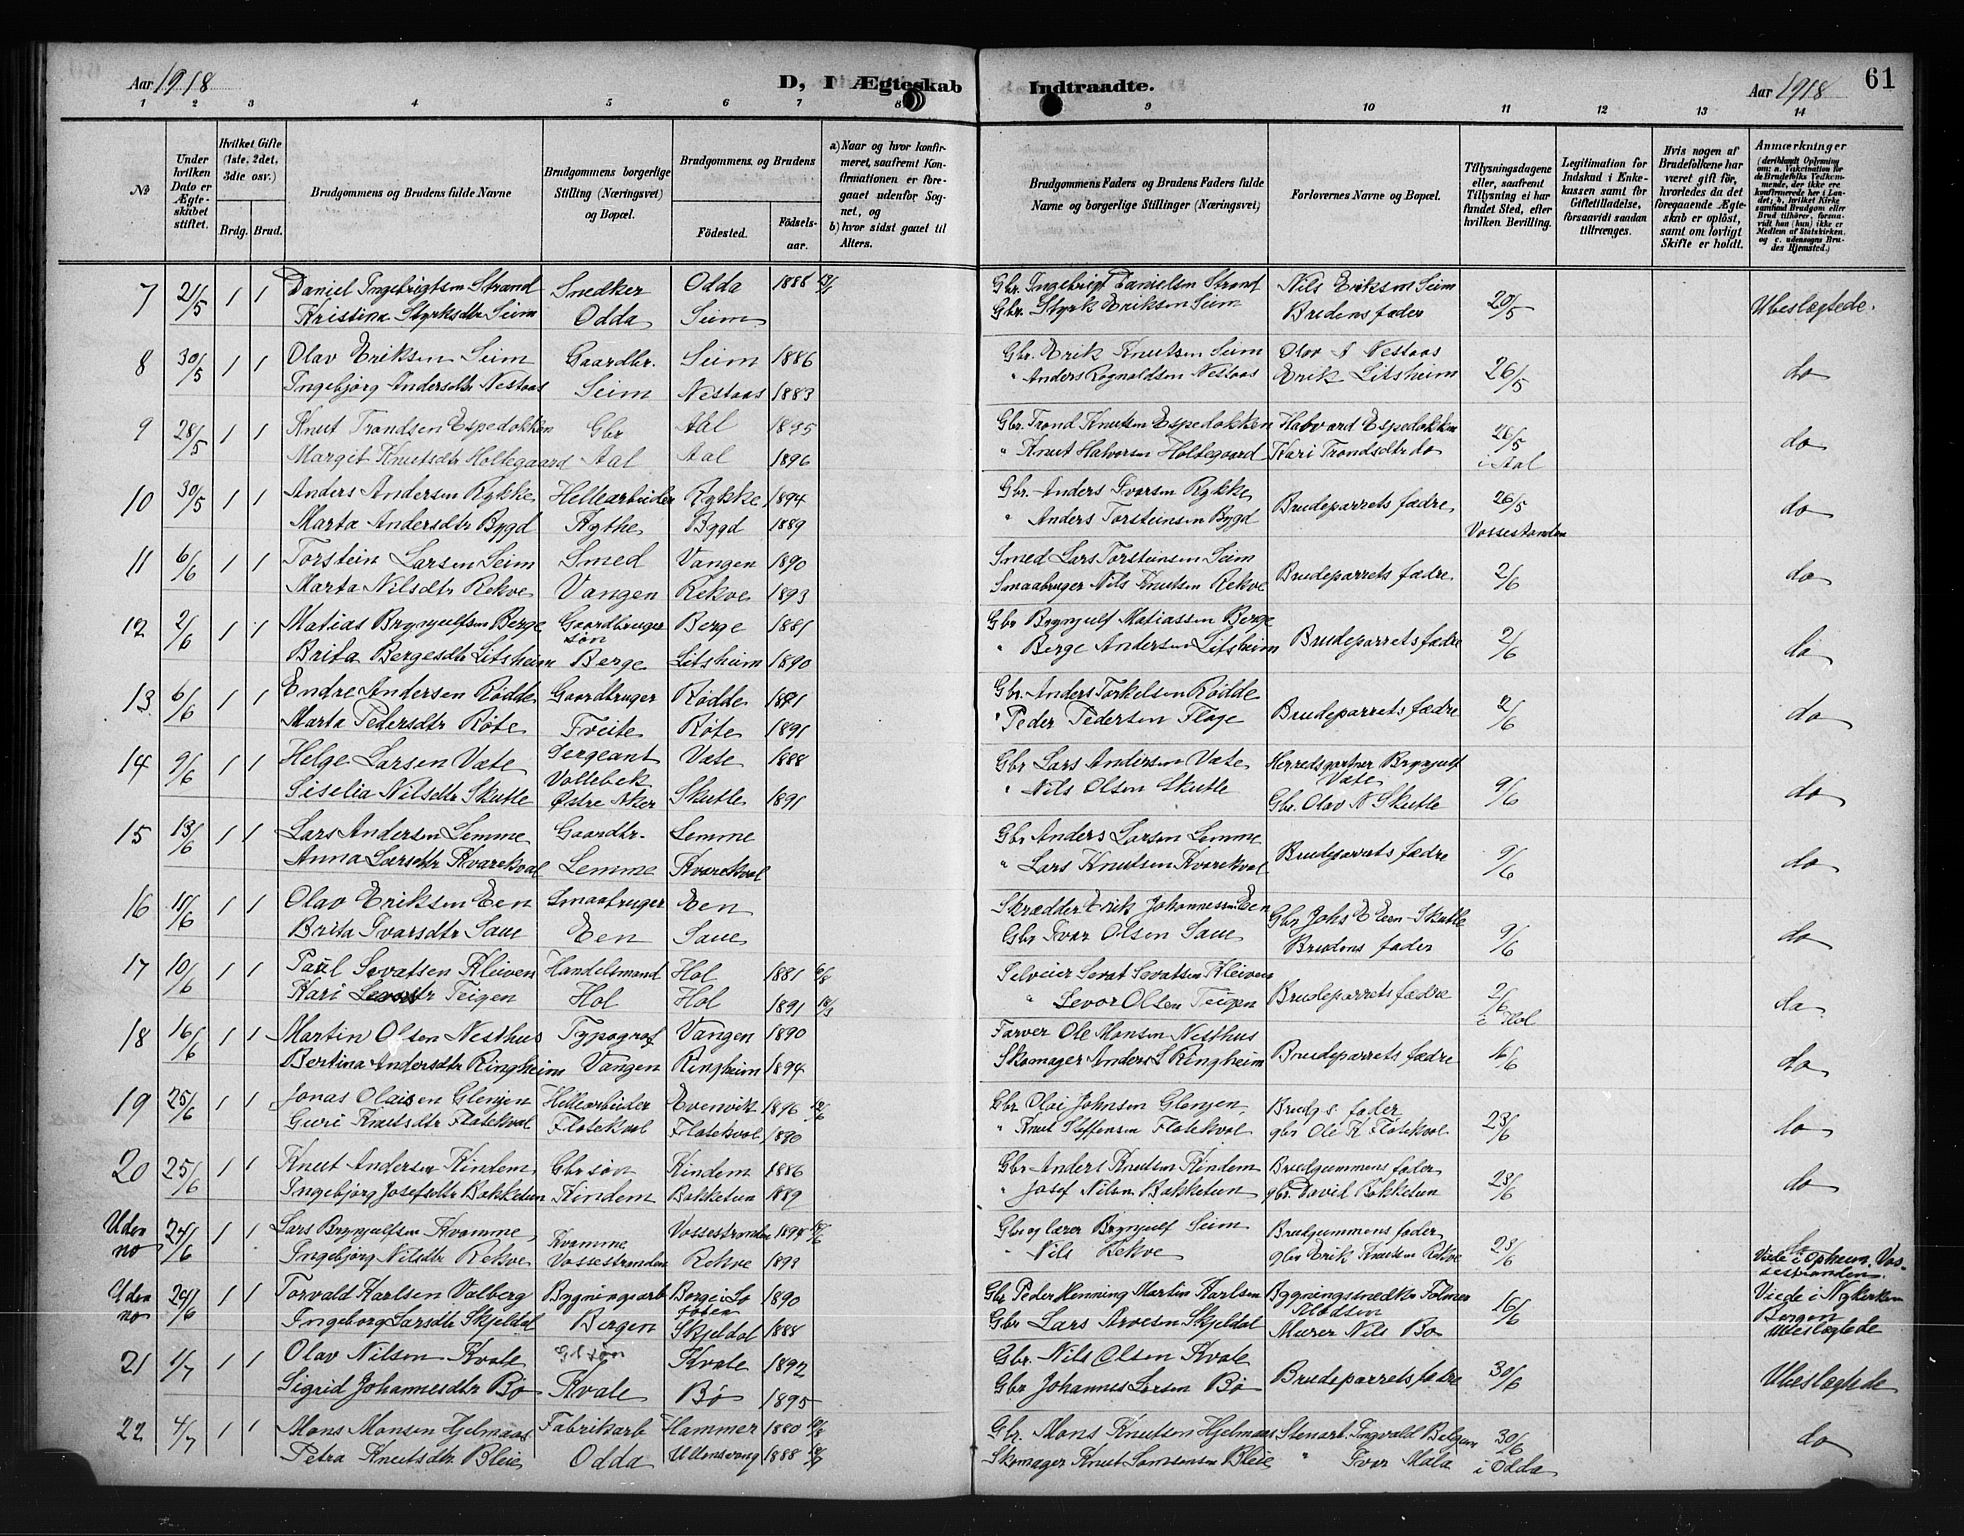 Aar 1918
D, I Ægteskab Indtraadte.
Aar 1918
61
1 2 3 4 5 6 7 8 9 10 11 12 13 14
No
Under hvilken Dato er Ægteskabet stiftet.
Hvilket Gifte (1ste, 2det, 3die osv.)
Brdg. Brud.
Brudgommens og Brudens fulde Navne
Brudgommens borgerlige Stilling (Næringsvei) og Bopæl.
Brudgommens og Brudens
Fødested.
Fødselsaar.
a) Naar og hvor konfirmeret, saafremt Konfirmationen er foregaaet udenfor Sognet, og
b) hvor sidst gaaet til Alters.
Brudgommens Faders og Brudens Faders fulde Navne og borgerlige Stillinger (Næringsvei)
Forlovernes Navne og Bopæl.
Tillysningsdagene eller, saafremt Tillysning ei har fundet Sted, efter hvilken Bevilling.
Legitimation for Indskud i Enkekassen samt for Giftetilladelse, forsaavidt saadan tiltrænges.
Hvis nogen af Brudefolkene har været gift før, hvorledes da det foregaaende Ægteskab er opløst, samt om lovligt Skifte er holdt.
Anmærkninger
7 21/5 1 1 Daniel Ingebrigtsen Strand Snedker Odda 1888 Gbr. Ingebrigt Danielsen Strand Nils Eriksen Seim 20/5 Ubeslægtede.
Kristina Styrksdtr Seim Odda Seim Gbr. Styrk Eriksen Seim Brudens fader
8 30/5 1 1 Olav Eriksen Seim Gaardbr. Seim 1886 Gbr. Erik Knutsen Seim Olav A Nestaas 26/5 do
Ingebjørg Andersdtr Nestaas Seim Nestaas 1883 " Anders Rognaldsen Nestaas Erik Litsheim
9 28/5 1 1 Knut Trondsen Espedokken Gbr Aal 1895 Gbr. Trond Knutsen Espedokken Halvard Espedokken 26/5 do
Margit Knutsdtr Holtegaard Aal Aal 1896 " Knut Halvorsen Holtegaard Kari Trondsdtr do i Aal
10 30/5 1 1 Anders Andersen Rykke Hellearbeider Rykke 1894 Gbr. Anders Ivarsen Rykke Brudeparrets fædre 26/5 do
Marta Andersdtr Bygd Kythe Bygd 1889 " Anders Torsteinsen Bygd Vossestranden
11 6/6 1 1 Torstein Larsen Seim Smed Vangen 1890 Smed Lars Torsteinsen Seim Brudeparrets fædre 2/6 do
Marta Nilsdtr Rekve Vangen Rekve 1893 Smaabruger Nils Knutsen Rekve
12 2/6 1 1 Matias Brynjulfsen Berge Gaardbruger søn Berge 1881 Gbr Brynjulf Matiassen Berge Brudeparrets fædre 2/6 do
Brita Bergesdtr Litsheim Berge Litsheim 1890 " Berge Andersen Litsheim
13 6/6 1 1 Endre Andersen Rødde Gaardbruger Rødde 1881 Gbr. Anders Torkelsen Rødde Brudeparrets fædre 2/6 do
Marta Pedersdtr Røte Tveite Røte 1891 " Peder Pedersen Flage
14 9/6 1 1 Helge Larsen Væte Sergeant Væte 1888 Gbr Lars Andersen Væte Herredsgartner Brynjulf Væte 9/6 do
Siselia Nilsdtr Skutle Vollebek Østre Aker Skutle 1891 " Nils Olsen Skutle Gbr. Olav N Skutle
15 13/6 1 1 Lars Andersen Lemme Gaardbr. Lemme Gbr Anders Larsen Lemme Brudeparrets fædre 9/6 do
Anna Larsdtr Kvarekval Lemme Kvarekval " Lars Knutsen Kvarekval
16 15/6 1 1 Olav Eriksen Een Smaabruger Een Skrædder Erik Johannessen Een Gbr Johs E Een Skutle 9/6 do
Brita Ivarsdtr Saue Een Saue Gbr Ivar Olsen Saue Brudens fader
17 10/6 1 1 Paul Sevatsen Kleiven Handelsmand Hol 1881 Selveier Sevat Sevatsen Kleiven Brudeparrets fædre 2/6 do
Kari Levorsdtr Teigen Hol Hol 1891 " Levor Olsen Teigen i Hol
18 16/6 1 1 Martin Olsen Nesthus Typograf Vangen 1890 Farver Ole Monsen Nesthus Brudeparrets fædre 16/6 do
Bertina Andersdtr Ringheim Vangen Ringheim 1894 Skomager Anders L Ringheim
19 25/6 1 1 Jonas Olaisen Glenjen Hellearbeider Evenvik 1896 Gbr Olai Johnsen Glenjen Brudg s. fader 23/6 do
Guri Knutsdtr Flatekval Flatekval Flatekval 1890 " Knut Steffensen Flatekval gbr Ole K Flatekval
20 25/6 1 1 Knut Andersen Kindem Gbr søn Kindem 1886 Gbr Anders Knutsen Kindem Brudgummens fader 23/6 do
Ingebjørg Josefsdtr Bakketun Kindem Bakketun 1889 " Josef Nilsen Bakketun gbr. David Bakketun
Uden no 24/6 1 1 Lars Brynjulfsen Kvamme Kvamme Vossestranden 1894 Gbr og lærer Brynjulf Seim Brudgummens fader 23/6 do
Ingebjørg Nilsdtr Rekve Vossestranden Rekve 1893 " Nils Rekve gbr Erik Knutsen Rekve Viede i Opheim, Vossestranden.
Uden no 24/6 1 1 Torvald Karlsen Valberg Bygningsarb Borge i Lofoten 1890 Gbr Peder Henning Martin Karlsen Bygningssnedker Folmer Madsen 16/6 Viede i Nykirken Bergen
Ingeborg Larsdtr Skjeldal Bergen Skjeldal 1888 Gbr Lars Arvesen Skjeldal Murer Nils Bø Ubeslægtede
21 1/7 1 1 Olav Nilsen Kvale Gbr søn Kvale 1892 Gbr. Nils Olsen Kvale Brudeparrets fædre 30/6 Ubeslægtede
Sigrid Johannesdtr Bø Kvale Bø 1895 Gbr Johannes Larsen Bø
22 4/7 1 1 Mons Monsen Hjelmaas Fabrikarb Hammer 1880 Gbr. Mons Knutsen Hjelmaas Stenarb. Ingvald 30/6 do
Petra Knutsdtr Bleie Odda Ullensvang 1888 Skomager Knut Samsonsen Bleie " Ivar Mala i Odda